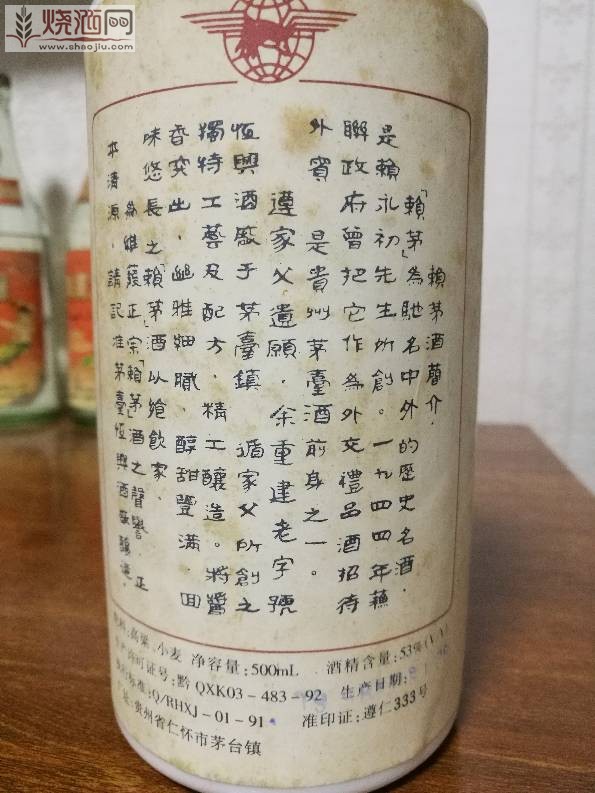 烧酒网
www.shaojiu.com
賴茅酒簡介.
「賴茅」為馳名中外的歷史名酒.
是賴永初先生所創。一九四四年蘇
聯政府曾把它作為外交禮品酒招待
外賓 是貴州茅臺酒前身之一。
遵家父遺願.余重建老字號
恆興酒廠于茅臺鎮 循家父所創之
獨特工藝及配方.精工釀造。將醬
香突出.幽雅細膩.醇甜豐滿.回
味悠長之「賴茅」酒以飨飲家.
為維護正宗「賴茅」酒之聲譽.正
本清源.請記准茅臺恆興酒廠釀造
料:高粱、小麦 净容量:500mL 酒精含量:53%(V/V)
生产许可证号:黔 QXK03-483-92 生产日期:
执行标准:Q/RHXJ-01-91 准印证:遵仁333号
址:贵州省仁怀市茅台镇